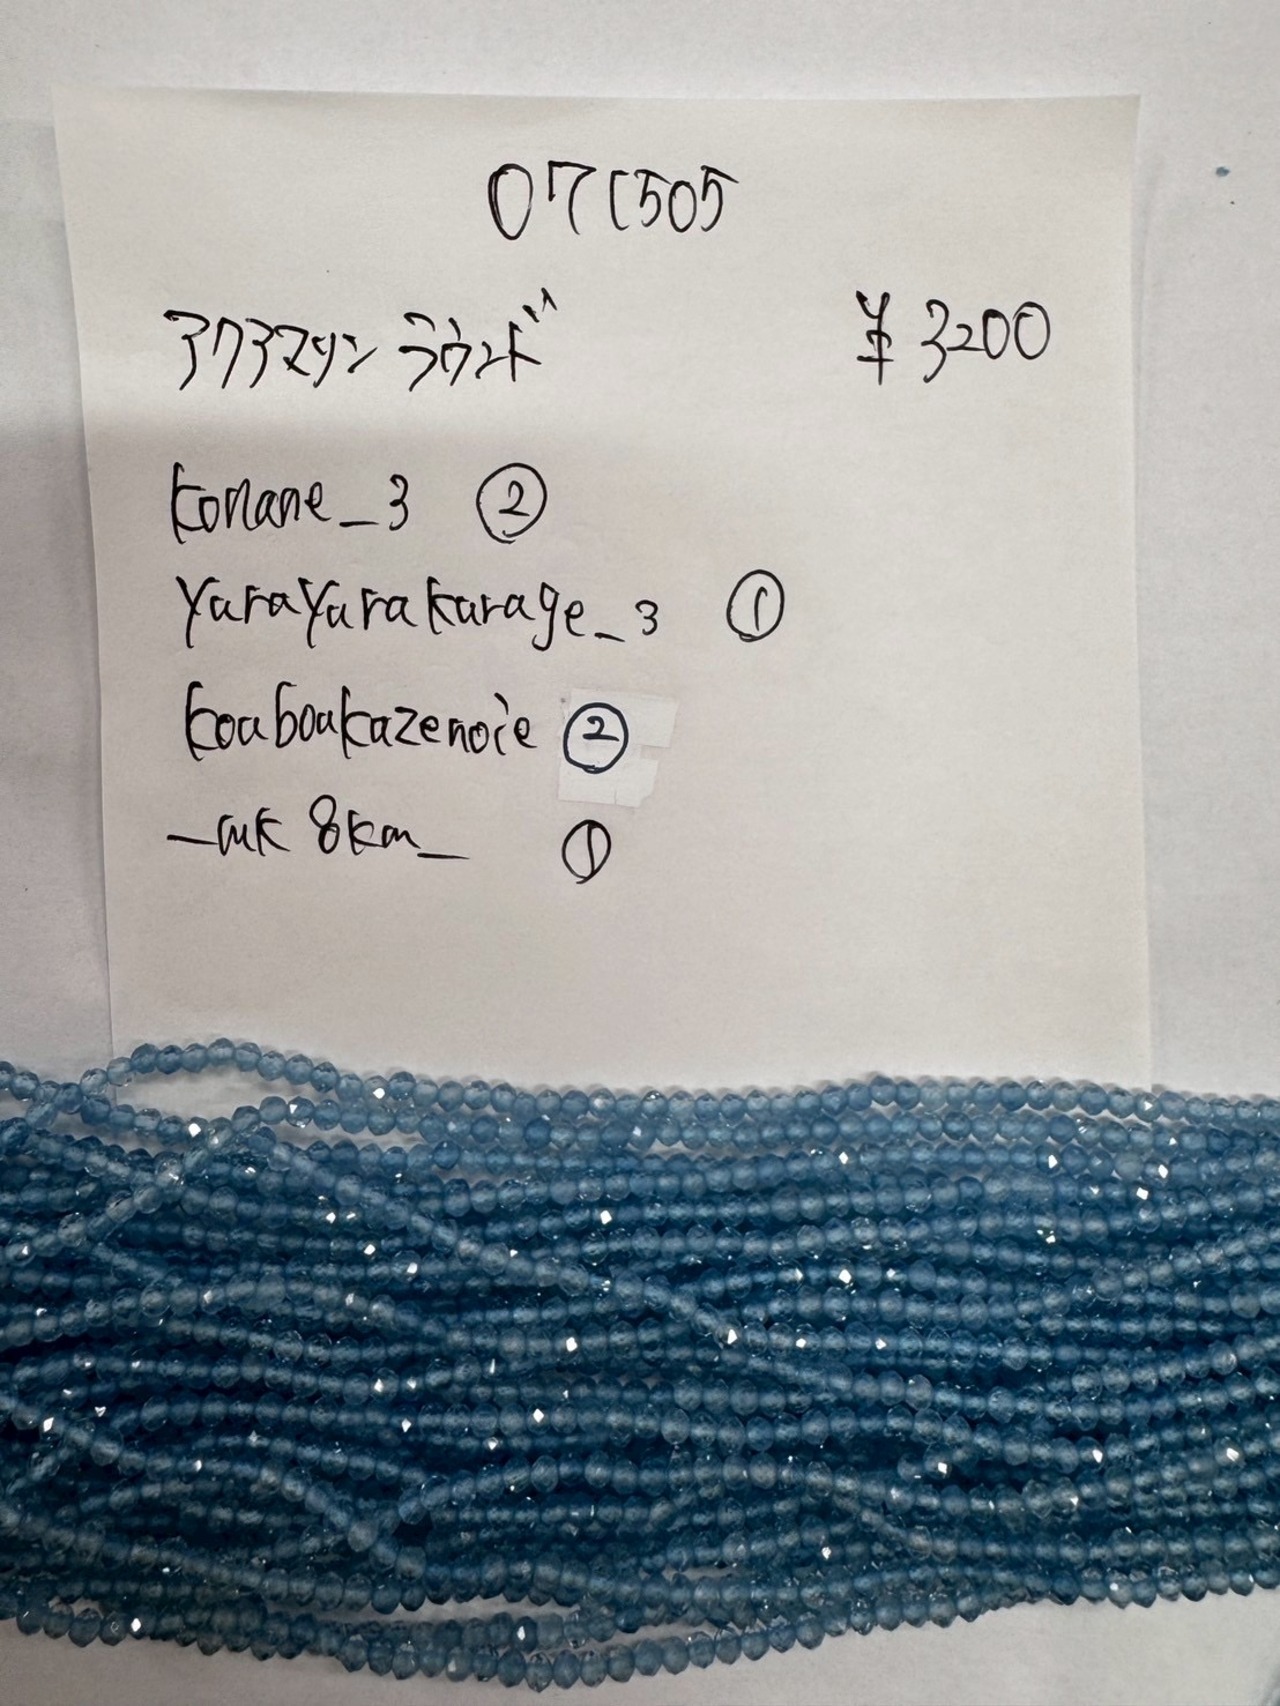 07C505
アクアマリン ラウンド ¥3200
konane_3 ②
yurayurakurage_3 ①
kouboukazenoie ②
_mk8km_ ①